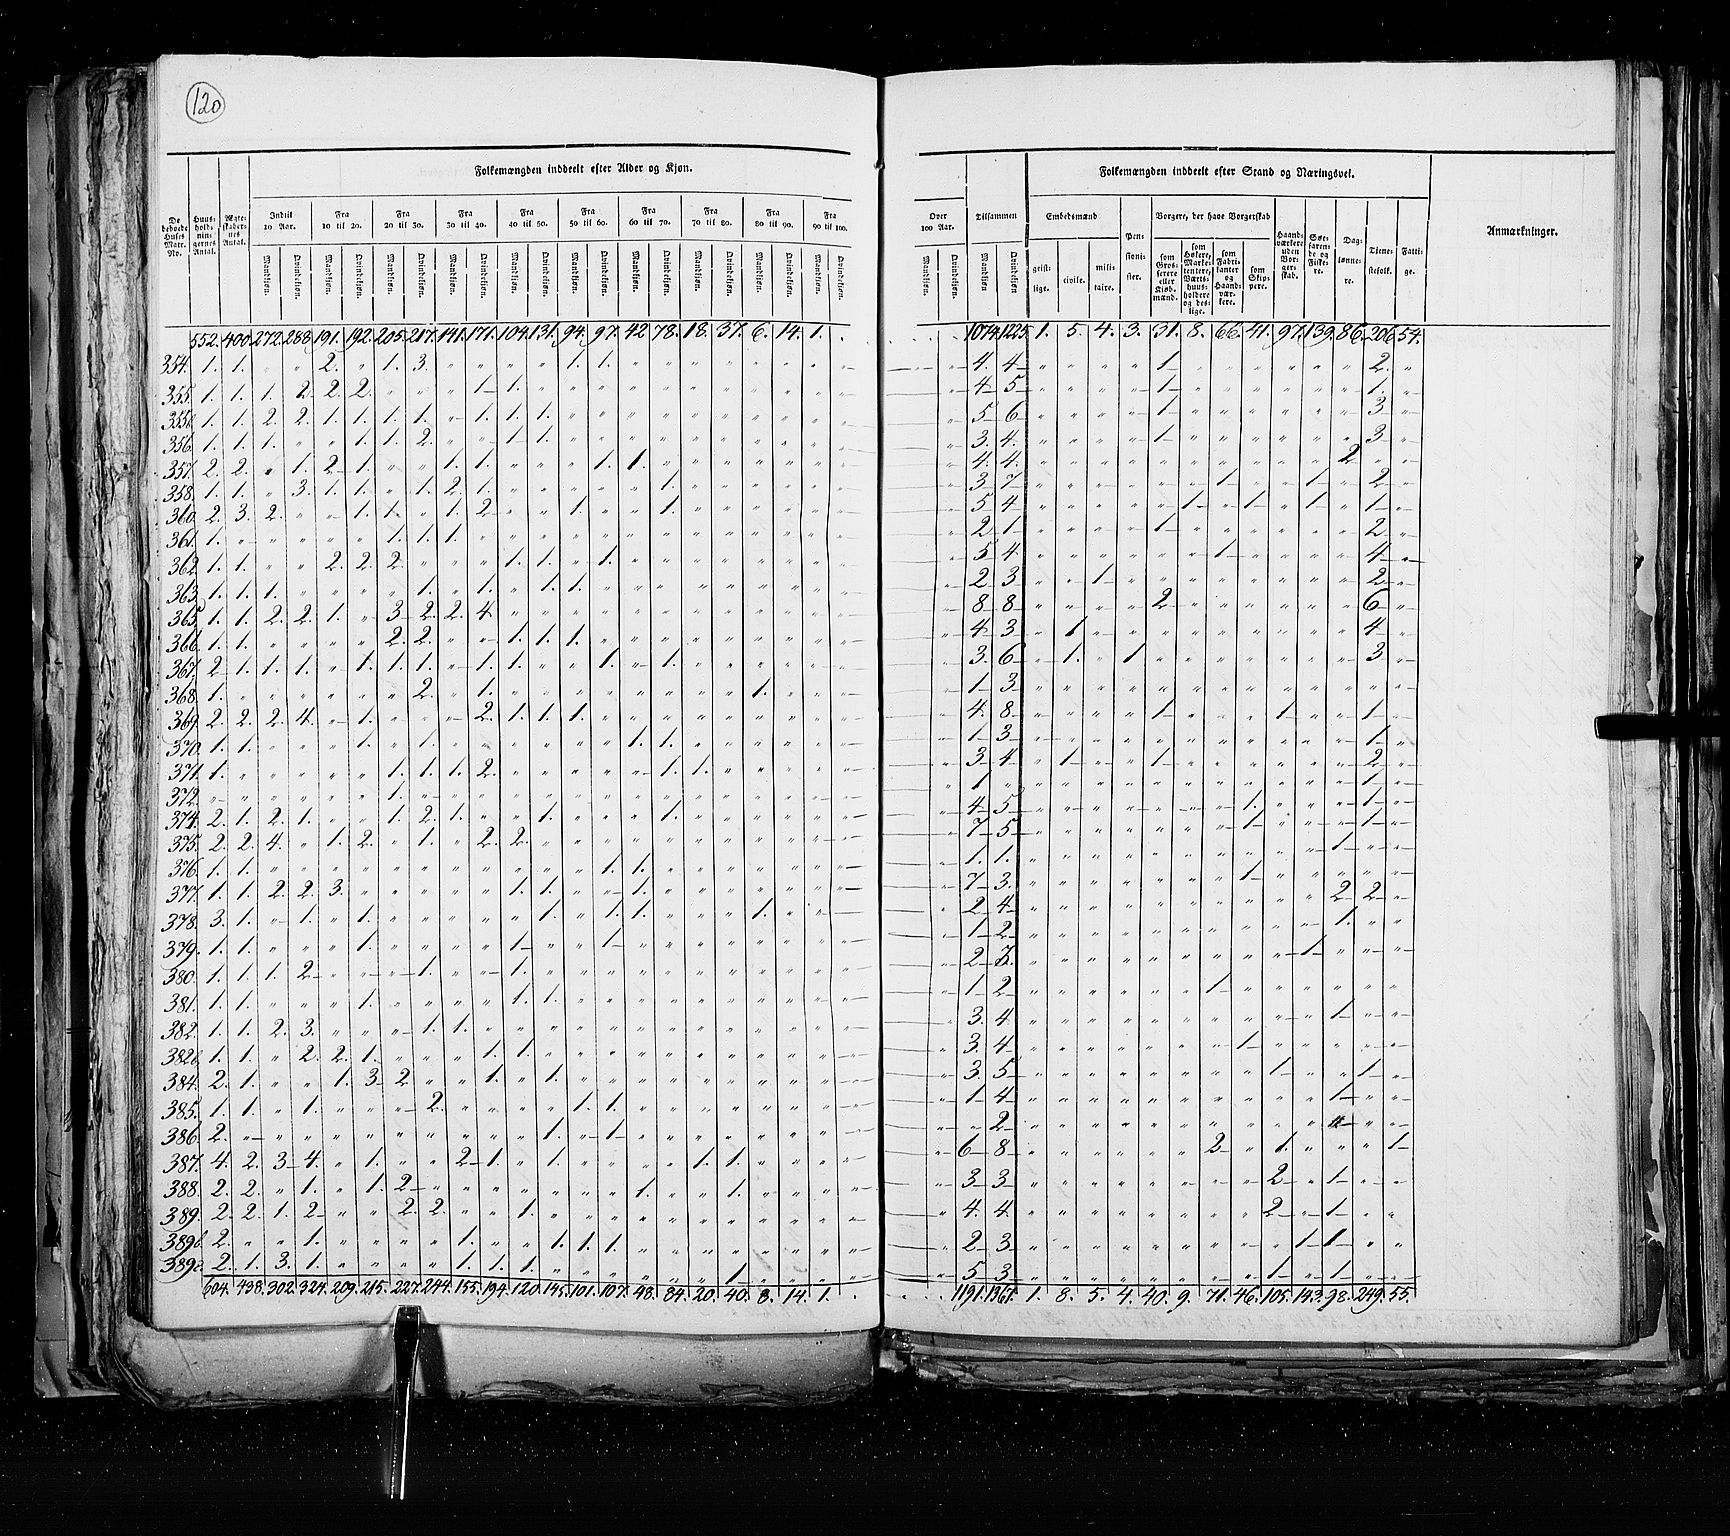 120
Folkemængden inddeelt efter Alder og Kjøn.
Folkemængden inddeelt efter Stand og Næringsvei.
De beboede Huses Matr. No. Huusholdningernes Antal. Ægteskabernes Antal. Indtil 10 Aar. Fra 10 til 20. Fra 20 til 30. Fra 30 til 40. Fra 40 til 50. Fra 50 til 60. Fra 60 til 70. Fra 70 til 80. Fra 80 til 90. Fra 90 til 100. Over 100 Aar. Tilsammen Embedsmænd Pensionister. Borgere, der have Borgerskab Haandværkere uden Borgerskab. Søefarende og Fiskere. Daglønnere. Tienestefolk. Fattige. Anmærkninger.
Mandkjøn. Qvindekjøn. Mandkjøn. Qvindekjøn. Mandkjøn. Qvindekjøn. Mandkjøn. Qvindekjøn. Mandkjøn. Qvindekjøn. Mandkjøn. Qvindekjøn. Mandkjøn. Qvindekjøn. Mandkjøn. Qvindekjøn. Mandkjøn. Qvindekjøn. Mandkjøn. Qvindekjøn. Mandkjøn. Qvindekjøn. Mandkjøn Qvindekjøn geistlige. civile. militaire. som Grosserere eller Kiøbmænd. som Høkere, Marketentere, Værtshuusholdere og deslige. som Fabrikanter og Haandværkere. som Skippere.
552. 400. 272. 288. 191. 192. 205. 217. 141. 171. 104. 131. 94. 97. 42 78. 18. 37. 6. 14. 1. 1074. 1225. 1. 5. 4. 3. 31. 8. 66. 41. 97. 139. 86. 206. 54.
354. 1. 1. " " 2. " 1. 3. " " " " 1. 1. 4. 4 1 2.
355. 1. 1. 1. 2. 2. 2. " " " 1 1. 4 5 1 1.
355b 1. 1. 2. 2. 1. 1. 1. 1. " 1. 1. 1. 5 6 1 3
356. 1. 1. 1. " " 1. 1. 2. " " 1 1. 3. 4. 1 3
357. 2. 2. " 1. 2 1. " " 1. 1. " " " 1. 1. 4. 4. 2
358. 1. 1. " 3. 1. 1. " 1. 2. 1. " " " " " 1. 3 7 1 1 2
360. 2. 3. 2. " " 1. 1. " 1. 2 " " 1. " " 1. 5 4 1 1 1 1
361. 1. " " " " " 1. 1. 1. 2 1 1 2
362. 1. 1. " " 2. 2. 2. " " " 1. 1. " 1. 5 4 1 4
363. 1. 1. 1. " " " " 1. " 1. " 1. 1. 2 3 1 2
365. 1. 1. 2. 2. 1. " 3 2. 2. 4. 8 8 2 6
366. 1. 1. " " " " 2. 2. " " 1. 1. 1. 4 3 1 4
367. 2 1. 1. 1. " 1. 1. 1. " 1. 1. " " 1. " 1. 3. 6 1. 1 3
368. 1. " " " " " " 2. " 1. " " " " " " " " 1. 1 3
369. 2. 2. 2. 4. " 1. " " " 2. 1. 1. 1. 4. 8 1 1 1
370. 1. 1. " " " 1. " 1. " " " " " " 1. 1. 1 3 1
371. 1. " " " " " 1. 1. 1. 2. " " " " " 1. 1. 3 4 1 1 2
372. " " " " " " 1. 1 " 1
374. 2. 1. 2. 1. " " 1. 2. 1. " " 1. " " " 1. 4 5 1. 1
375. 2. 2. 4. " 1. 2. " 1. " 2. 2. 7 5 1 1
376. 1. 1. " " " " " " " " " " " 1. 1. 1. 1. 1
377. 1. 1. 2. 2. 3. " " " " " 1. 1. " " 1. 7 3. 1
378. 3. 1. " 1. " 1. " " " " " 1. " 1. 1. " " " 1. 2 4 2 2
379. 1. 1. " " " 1. " " " " 1 " " 1 1 2 1.
380. 1. 1. 1. 2 " " " 1. " " 1. 2 1
381. 1. 1. " " " 1. " " " " 1. 1. 1 2 1
382. 1. 1. 2. 3. " " " 1. 1. 3. 4 1
382b. 1. 1. " 2. 2. 1. " " " 1. 1. 3. 4 1
384. 2. 1. " " 1. 3 2 " " 1. " 1. 3. 5 1 1
385. 1. 1. " 1. " " " 2. " " " " 1. 1. 1 4 1
386. 2. " " " " " " " " " " 1. " 1 " 2
387. 4. 2. 3 4. " 1. " " 2 1. " 1. " " " " 1. 1. 6 8 2 1. 1
388. 2. 2. " 1. " 1. 2 " " " " " " " 1. " " 1. 3 3 2 1
389. 2. 2. 1. 2 " " 2 2. " " 1. 4. 4. 2 1
389b. 2. " " 1. " " " " 1. " " 1. 1. 1. 2 3 1 1
389c 2. 1. 3. 1. " " " " 1. 1. 1. " " " " " " 1 5 3 1 1
604. 438. 302. 324. 209. 215. 227. 244. 155. 194. 120. 145. 101. 107. 48. 84. 20. 40. 8. 14. 1. 1191. 1367. 1. 8. 5. 4. 40. 9. 71. 46. 105. 143. 98. 249. 55.